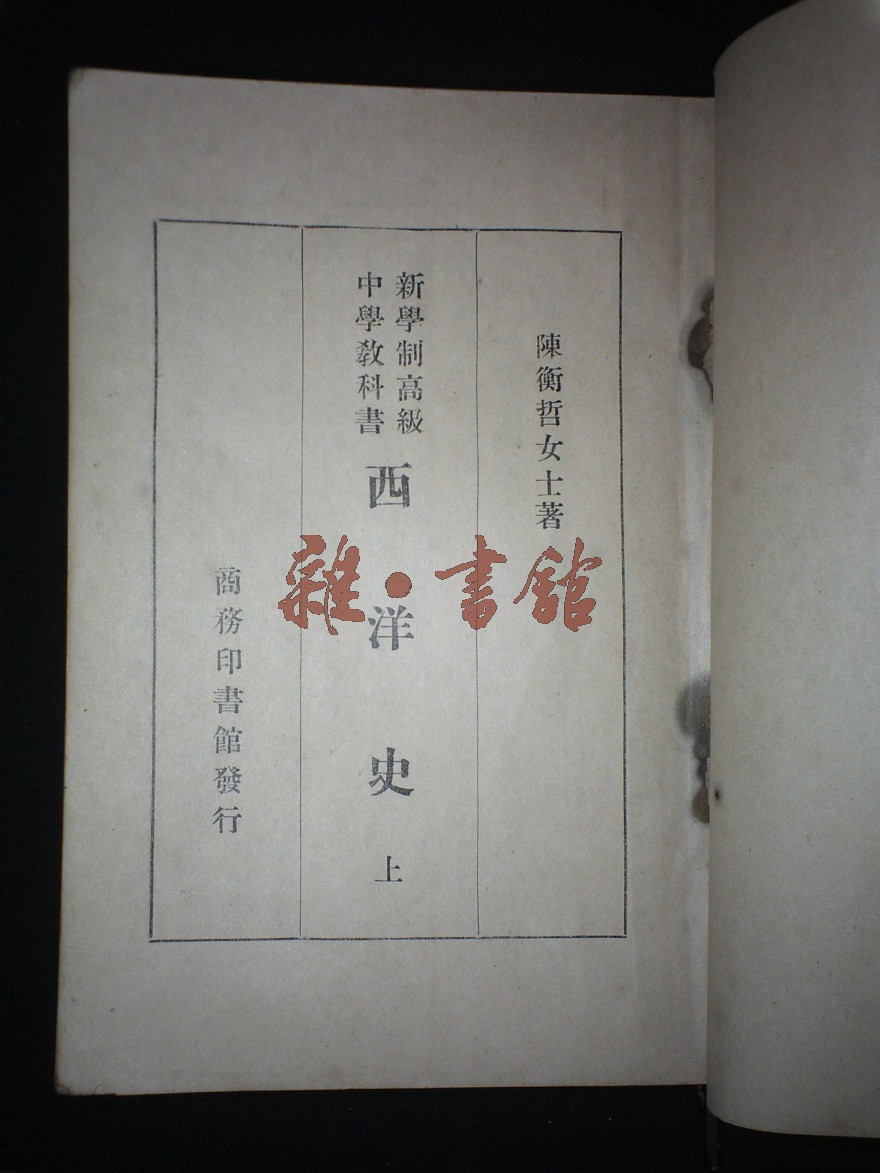 陳衡哲女士著
新學制高級
中學教科書
西洋史 上
商務印書館發行
雜·書館